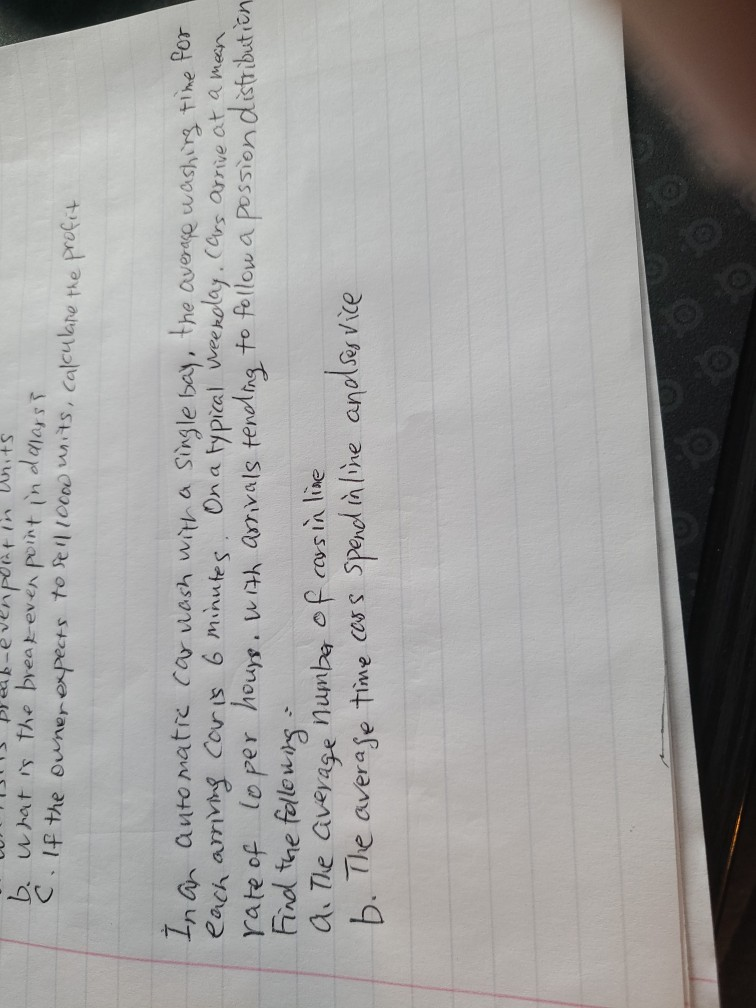 break-even point in units
b. what is the break-even point in dollars?
c. If the owner expects to sell 10000 units, calculate the profit
In an automatic car wash with a single bay, the average washing time for
each arriving car is 6 minutes. On a typical weekday. Cars arrive at a mean
rate of 10 per hours. with arrivals tending to follow a possion distribution
Find the following:-
a. The average number of cars in line
b. The average time cars spend in line and service